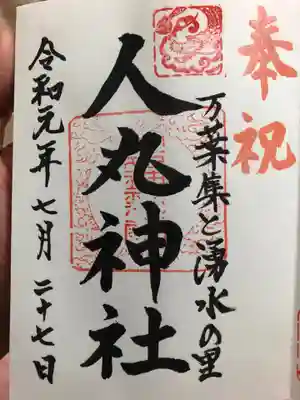 奉祝
万葉集と湧水の里
人丸神社
令和元年七月二十七日